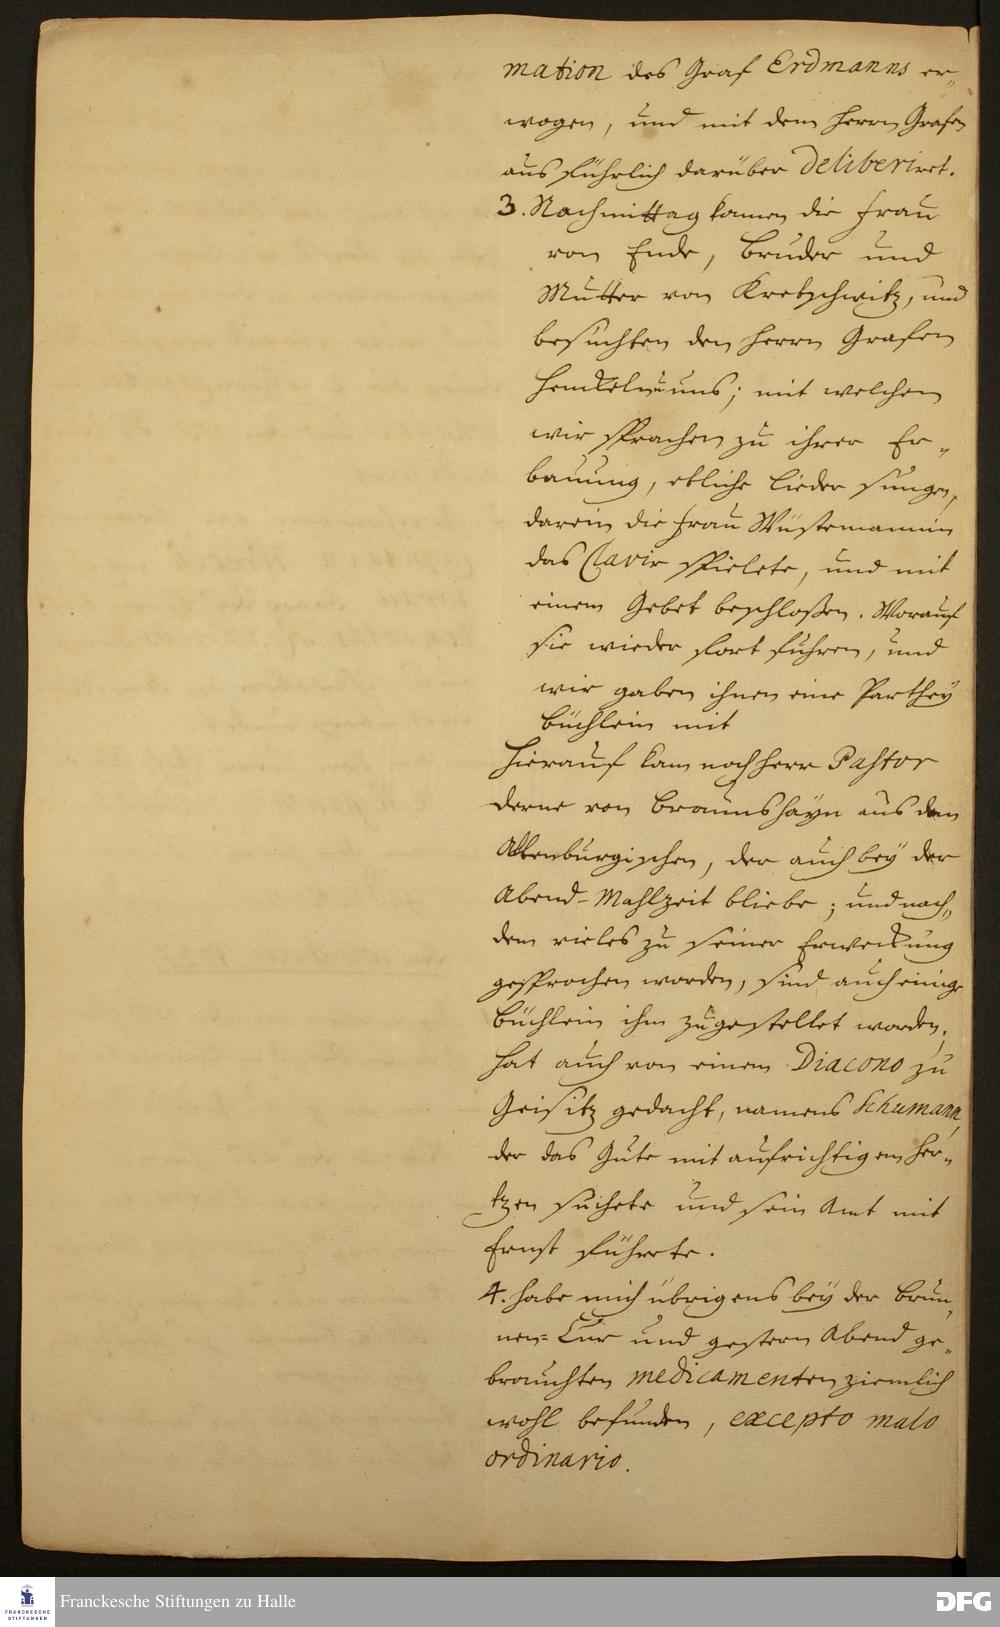 mation des Graf Erdmanns er„
wogen, und mit dem Herrn Grafen
ausführlich darüber deliberiret.
3. Nachmittag kamen die Frau
von Ende, Bruder und
Mutter von Kretzschwitz, und
besuchten den Herrn Grafen
Henckel u uns; mit welchen
wir sprachen zu ihrer Er„
bauung, etliche Lieder sungen,
darein die Frau Wüstemannin
das Clavir spielete, und mit
einem Gebet beschloßen. Worauf
sie wieder fort fuhren, und
wir gaben ihnen eine Parthey
Büchlein mit
Hierauf kam noch Herr Pastor
Derne von Braunshayn aus dem
Altenburgischen, der auch bey der
Abend-Mahlzeit bliebe; und nach„
dem vieles zu seiner Erweckung
gesprochen worden, sind auch einige
Büchlein ihm zugestellet worden,
hat auch von einem Diacono zu
Geisitz gedacht, namens Schumann,
der das Gute mit aufrichtigem Her„
tzen suchete und sein Amt mit
Ernst führete.
4. Habe mich übrigens bey der Brun„
nen-Cur und gestern Abend ge„
brauchten medicamenten ziemlich
wohl befunden, excepto malo
ordinario.
FRANCKESCHE STIFTUNGEN
Franckesche Stiftungen zu Halle
DFG